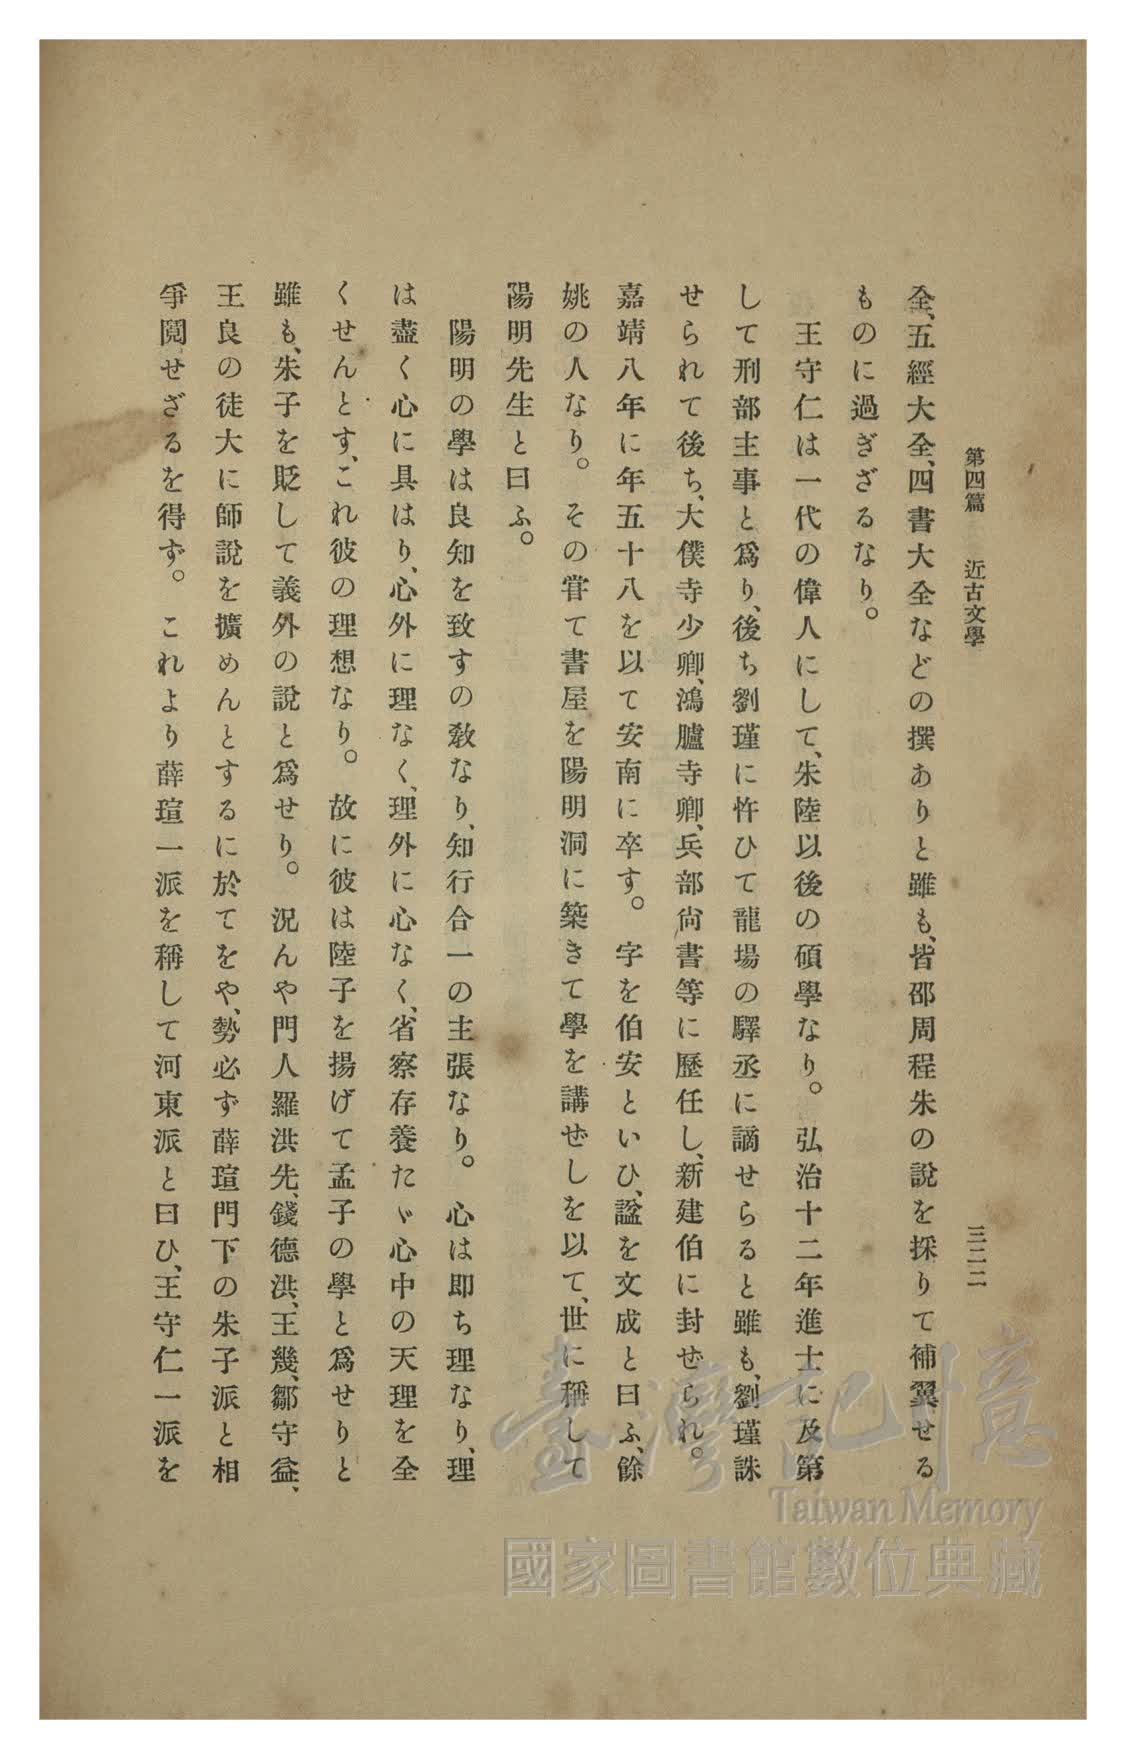 第四篇　近古文學　三二二
全、五經大全、四書大全などの撰ありと雖も、皆邵周程朱の說を採りて補翼せる
ものに過ぎざるなり。
王守仁は一代の偉人にして、朱陸以後の碩學なり。弘治十二年進士に及第
して刑部主事と爲り、後ち劉瑾に忤ひて龍場の驛丞に謫せらると雖も、劉瑾誅
せられて後ち、大僕寺少卿、鴻臚寺卿、兵部尙書等に歷任し、新建伯に封ぜられ。
嘉靖八年に年五十八を以て安南に卒す。字を伯安といひ、諡を文成と曰ふ、餘
姚の人なり。その甞て書屋を陽明洞に築きて學を講ぜしを以て、世に稱して
陽明先生と曰ふ。
陽明の學は良知を致すの敎なり、知行合一の主張なり。心は即ち理なり、理
は盡く心に具はり、心外に理なく、理外に心なく、省察存養たゞ心中の天理を全
くせんとす、これ彼の理想なり。故に彼は陸子を揚げて孟子の學と爲せりと
雖も、朱子を貶して義外の說と爲せり。況んや門人羅洪先、錢德洪、王幾、鄒守益、
王良の徒大に師說を擴めんとするに於てをや、勢必ず薛瑄門下の朱子派と相
爭鬩せざるを得ず。これより薛瑄一派を稱して河東派と曰ひ、王守仁一派を
臺灣記憶
Taiwan Memory
國家圖書館數位典藏